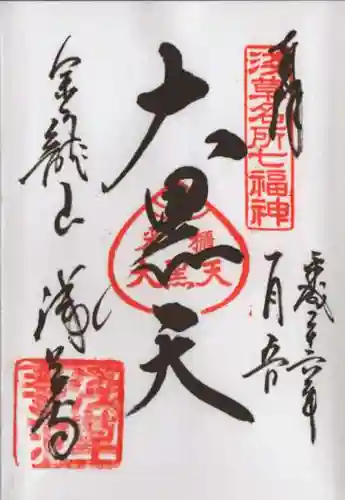 奉拝
浅草名所七福神
平成二十六年
一月
大黒天
米櫃
大黒天
金龍山
浅草寺